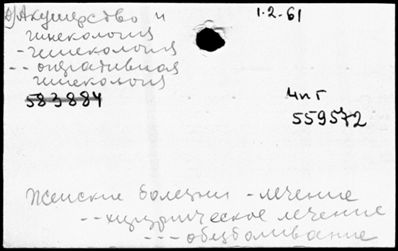 а) Акушерство и
гинекология
1-2-61
- гинекология
-- оперативная
гинекология
583884
Чпг
559572
Женские болезни - лечение
-- хирургическое лечение
--- обезболивание